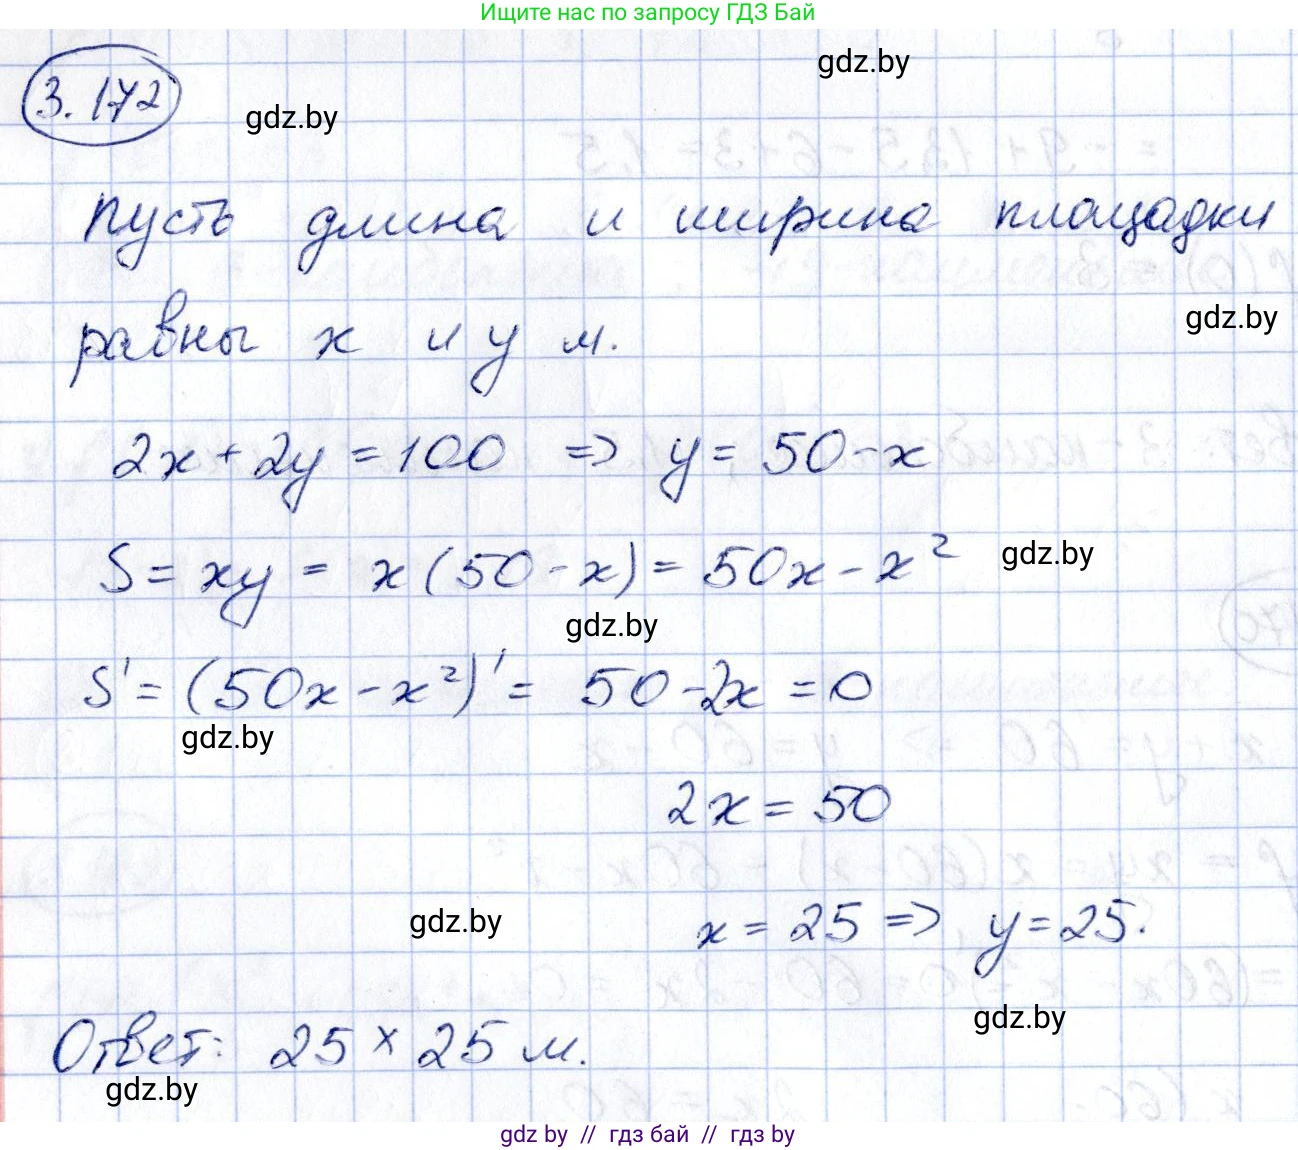 Ищите нас по запросу ГДЗ Бай
gdz.by
3.172
gdz.by
пусть длина и ширина площадки
gdz.by
равны x и y м.
2x + 2y = 100 => y = 50 - x
S = xy = x(50 - x) = 50x - x²
gdz.by
gdz.by
S' = (50x - x²)' = 50 - 2x = 0
gdz.by
2x = 50
gdz.by
x = 25 => y = 25.
gdz.by
Ответ: 25 x 25 м.
gdz.by
gdz by // гдз бай // гдз by